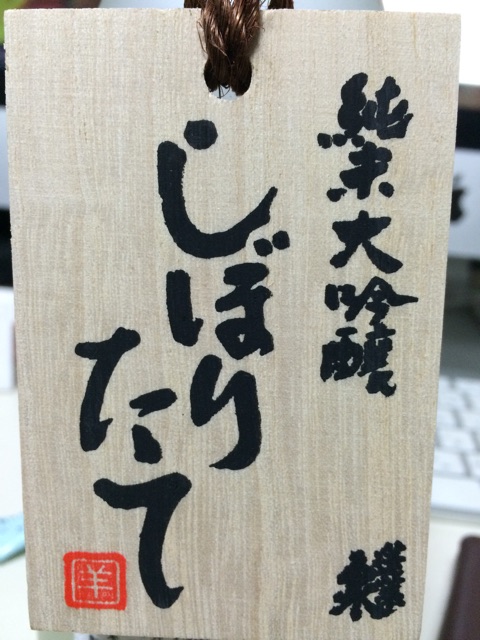 純米大吟醸
しぼり
たて
羊